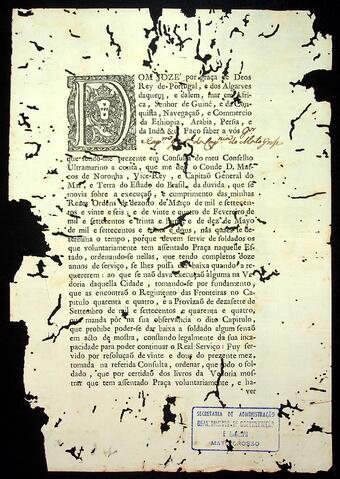 DOM JOZE' por graça de Deos
Rey de Portugal, e dos Algarves
daquem, e dalém, mar em Afri-
ca, Senhor de Guiné, e da Con-
quista, Navegaçaõ, e Commercio
da Ethiopia, Arabia, Persia, e
da India &c. Faço saber a vós
de Mato grosso
que sendo-me prezente em Consulta do meu Conselho
Ultramarino a conta, que me deo o Conde D. Mar-
cos de Noronha, Vice-Rey, e Capitaõ General do
Mar, e Terra do Estado do Brasil, da duvida, que se
movia sobre a execuçaõ, e cumprimento das minhas
Reaes Ordens de dezoito de Março de mil e settecen-
tos e vinte e seis, e de vinte e quatro de Fevereiro de
mil e settecentos e trinta e de dez de Mayo
de mil e settecentos e trinta e dous, nas quaes se de-
termina o tempo, porque devem servir de soldados os
que voluntariamente tem assentado Praça naquelle Es-
tado, ordenando-se nellas, que tendo completos doze
annos de serviço, se lhes possa dar baixa quando a re-
quererem: ao que se naõ dava execuçaõ alguma na Ve-
doria daquella Cidade, tomando-se por fundamento,
que as encontraõ o Regimento das Fronteiras no Ca-
pitulo quarenta e quatro, e a Provizaõ de dezasette de
Settembro de mil e settecentos e quarenta e quatro,
que manda pôr na sua observancia o dito Capitulo,
que prohibe poder-se dar baixa a soldado algum senaõ
em acto de mostra, constando legalmente da sua inca-
pacidade para poder continuar o Real Serviço: Fuy ser-
vido por resoluçaõ de vinte e dous do prezente mez,
tomada na referida Consulta, ordenar, que todo o sol-
dado, que por certidaõ dos livros da Vedoria mos-
trar que tem assentado Praça voluntariamente, e ha-
ver
SECRETARIA DE ADMINISTRAÇÃO
DEPARTAMENTO DE DOCUMENTAÇÃO
E ARQUIVO
MATO GROSSO